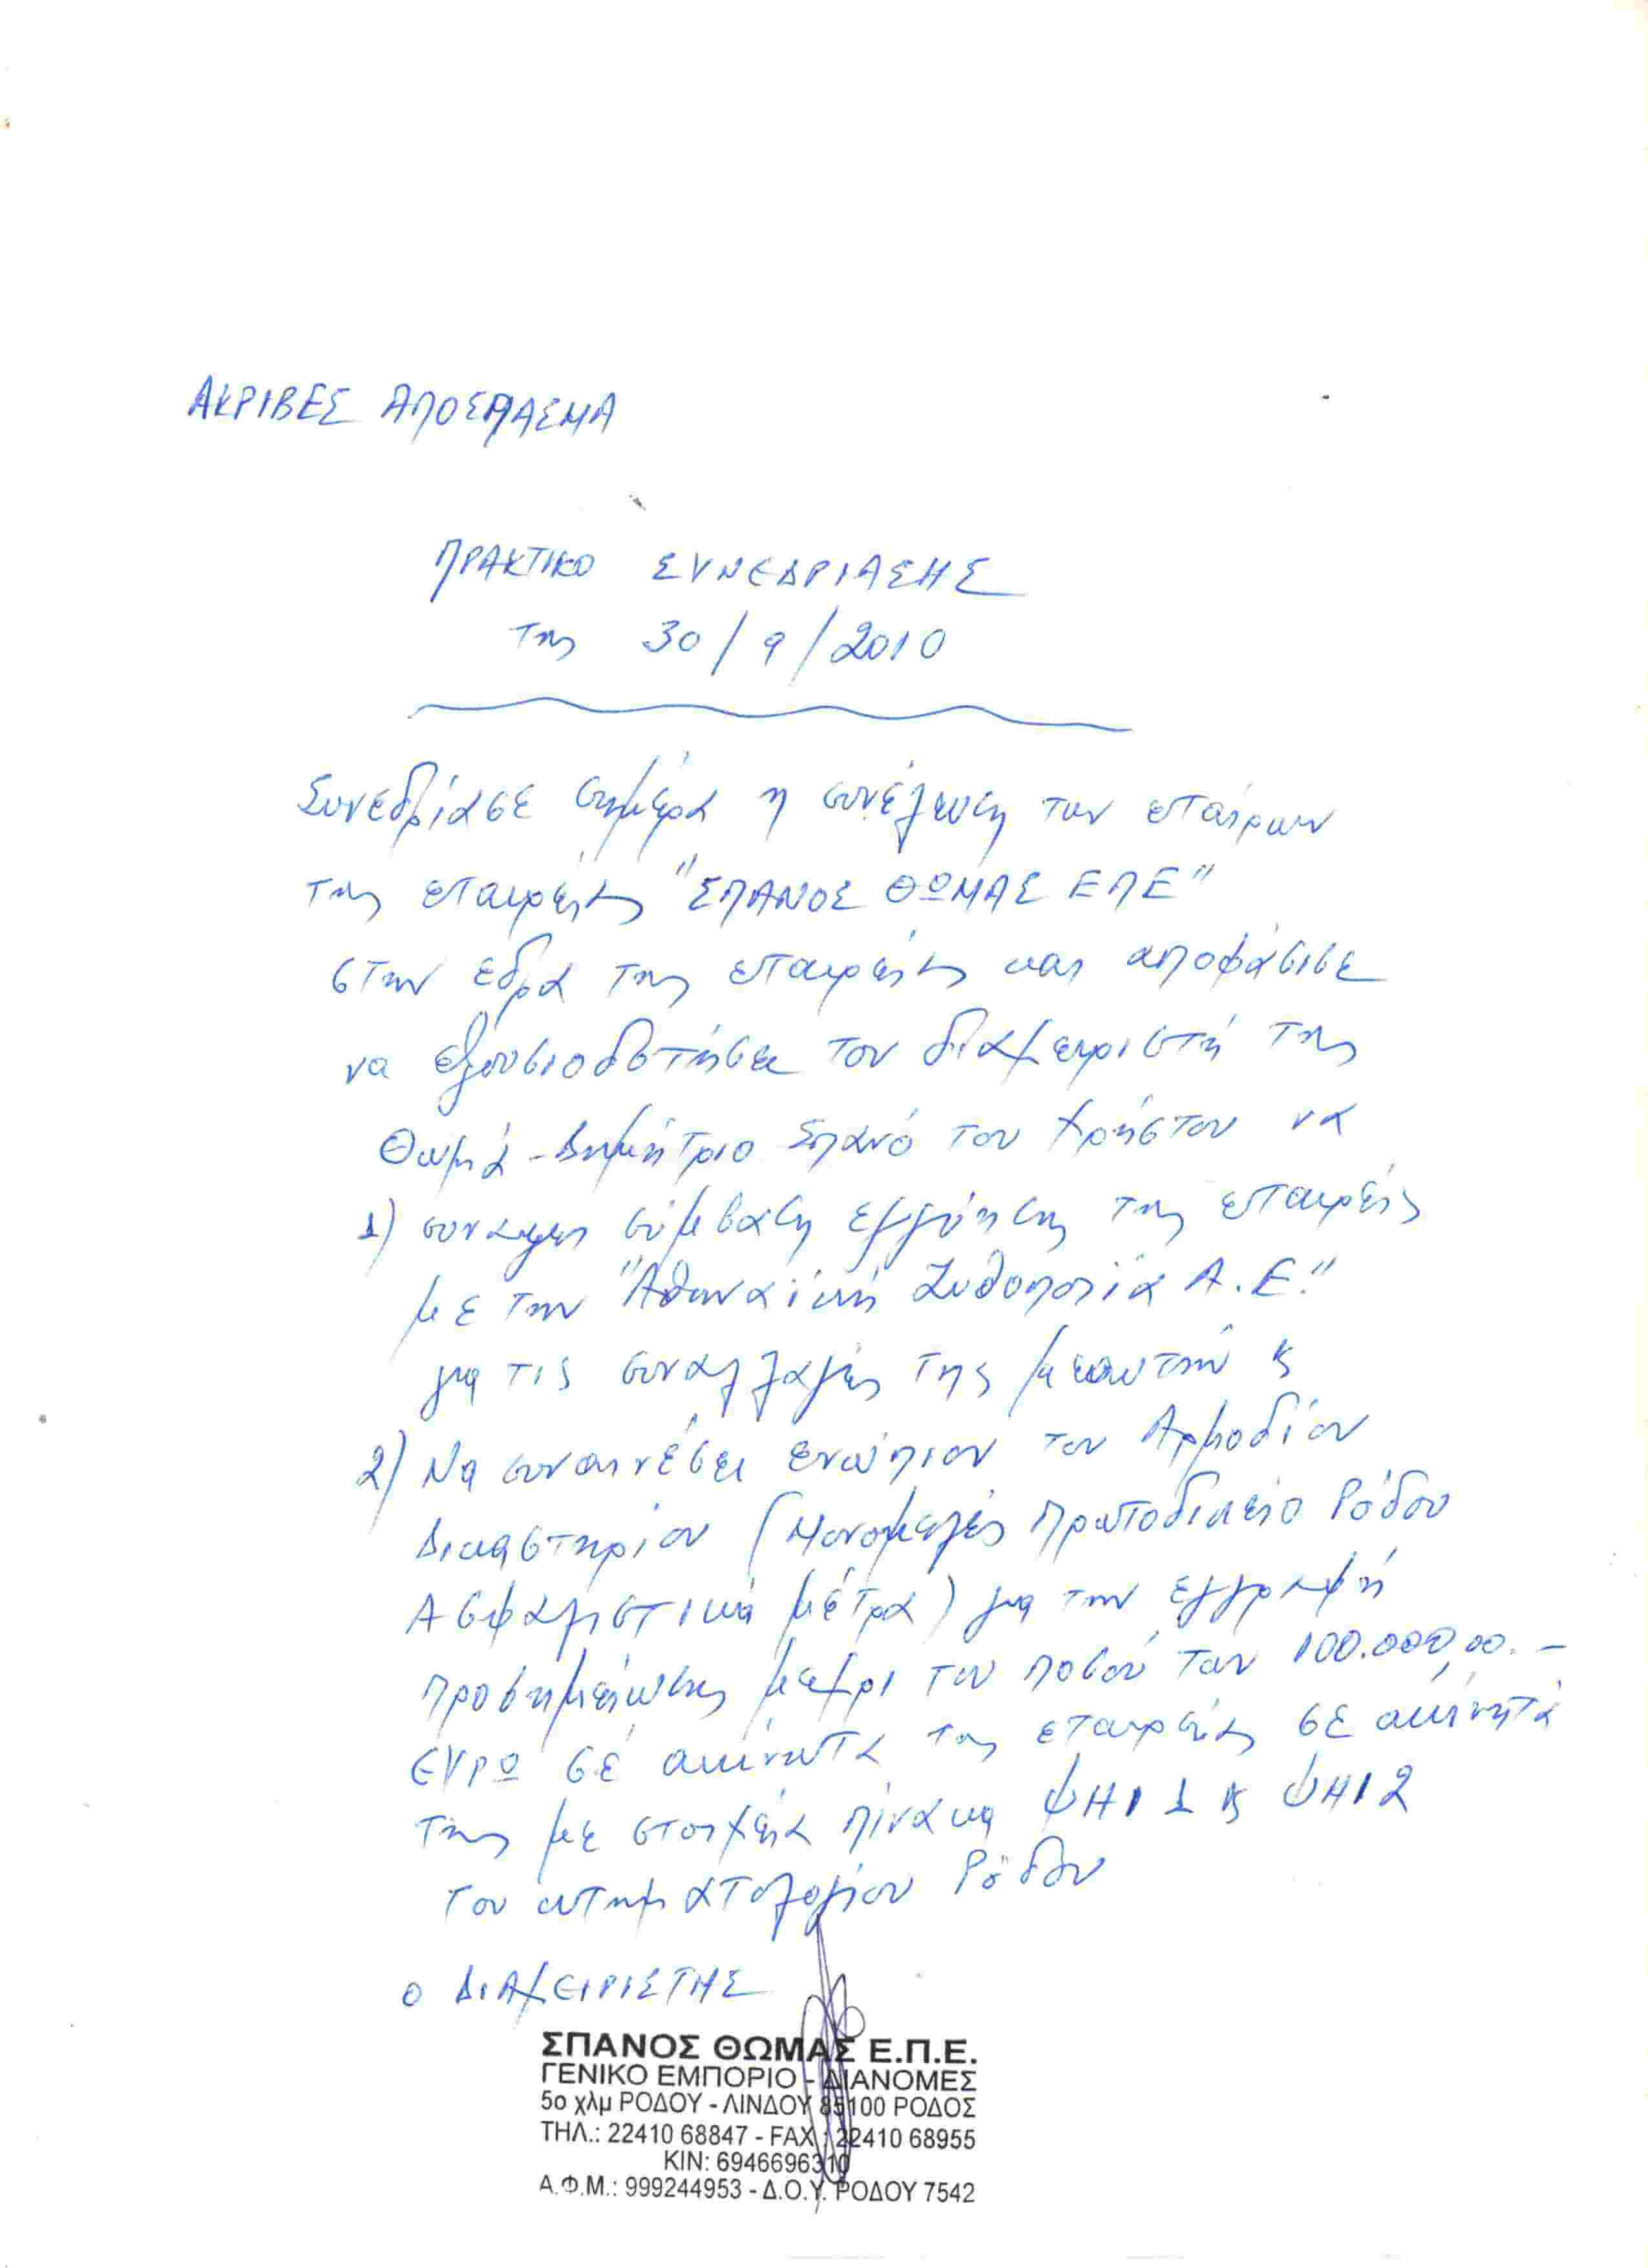 ΑΚΡΙΒΕΣ ΑΠΟΣΠΑΣΜΑ
ΠΡΑΚΤΙΚΟ ΣΥΝΕΔΡΙΑΣΗΣ
της 30/9/2010
Συνεδρίασε σήμερα η συνέλευση των εταίρων
της εταιρείας "ΣΠΑΝΟΣ ΘΩΜΑΣ ΕΠΕ"
στην έδρα της εταιρείας και αποφάσισε
να εξουσιοδοτήσει τον διαχειριστή της
Θωμά-Δημήτριο Σπανό του Χρήστου να
1) συνάψει σύμβαση εγγύησης της εταιρείας
με την "Αθηναϊκή Ζυθοποιία Α.Ε."
για τις συναλλαγές της με αυτήν κ
2) Να συναινέσει ενώπιον του Αρμοδίου
Δικαστηρίου (Μονομελές Πρωτοδικείο Ρόδου
Ασφαλιστικά μέτρα) για την εγγραφή
προσημείωσης μέχρι του ποσού των 100.000,00.-
ΕΥΡΩ σέ ακίνητα της εταιρείας σε ακίνητά
της με στοιχεία πίνακα ΨΗΙ 1 κ ΨΗΙ 2
του κτηματολογίου Ρόδου
Ο ΔΙΑΧΕΙΡΙΣΤΗΣ
ΣΠΑΝΟΣ ΘΩΜΑΣ Ε.Π.Ε.
ΓΕΝΙΚΟ ΕΜΠΟΡΙΟ - ΔΙΑΝΟΜΕΣ
5ο χλμ ΡΟΔΟΥ - ΛΙΝΔΟΥ 85100 ΡΟΔΟΣ
ΤΗΛ.: 22410 68847 - FAX: 22410 68955
ΚΙΝ: 6946696310
Α.Φ.Μ.: 999244953 - Δ.Ο.Υ. ΡΟΔΟΥ 7542